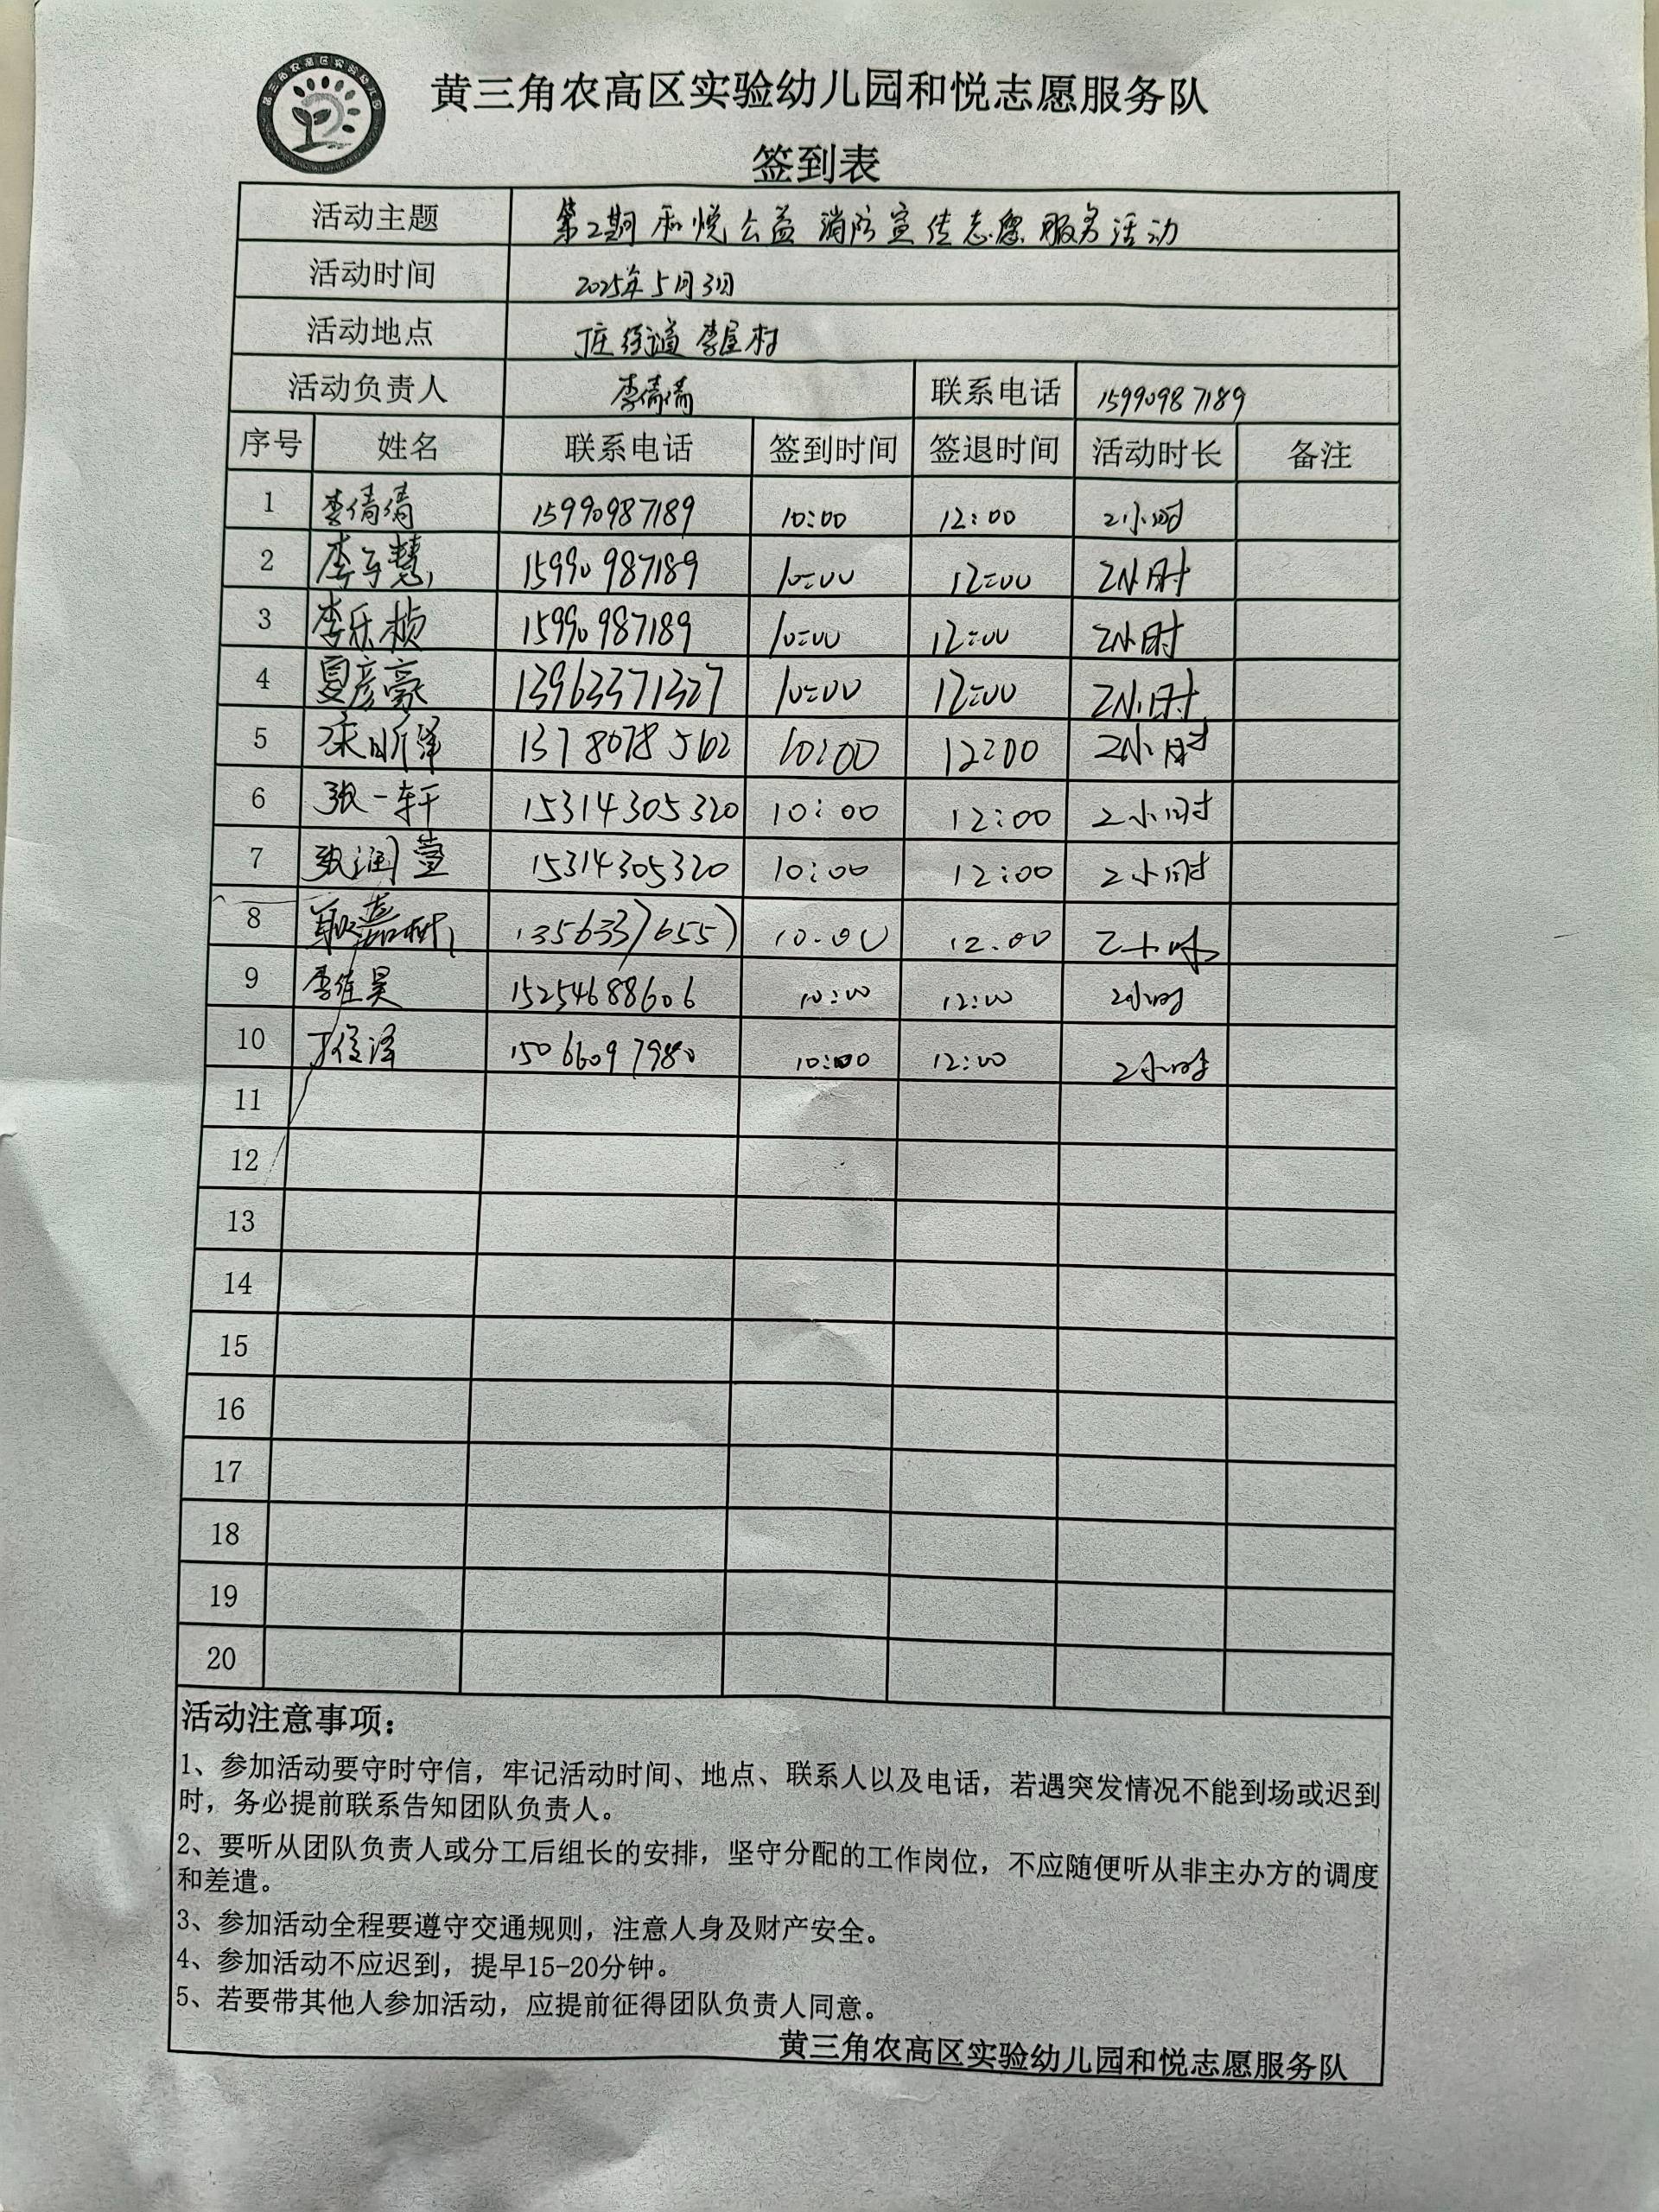 黄三角农高区实验幼儿园和悦志愿服务队
签到表
活动主题 第2期和悦公益消防宣传志愿服务活动
活动时间 2025年5月3日
活动地点 丁庄街道李屋村
活动负责人 李倩倩 联系电话 15990987189
序号 姓名 联系电话 签到时间 签退时间 活动时长 备注
1 李倩倩 15990987189 10:00 12:00 2小时
2 李子慧 15990987189 10:00 12:00 2小时
3 李乐桢 15990987189 10:00 12:00 2小时
4 夏彦豪 13963371327 10:00 12:00 2小时
5 13780785102 10:00 12:00 2小时
6 张一轩 15314305320 10:00 12:00 2小时
7 张润萱 15314305320 10:00 12:00 2小时
8 10:00 12:00 2小时
9 李维昊 15254688606 10:00 12:00 2小时
10 丁俊泽 15066097980 10:00 12:00 2小时
11
12
13
14
15
16
17
18
19
20
活动注意事项：
1、参加活动要守时守信，牢记活动时间、地点、联系人以及电话，若遇突发情况不能到场或迟到
时，务必提前联系告知团队负责人。
2、要听从团队负责人或分工后组长的安排，坚守分配的工作岗位，不应随便听从非主办方的调度
和差遣。
3、参加活动全程要遵守交通规则，注意人身及财产安全。
4、参加活动不应迟到，提早15-20分钟。
5、若要带其他人参加活动，应提前征得团队负责人同意。
黄三角农高区实验幼儿园和悦志愿服务队